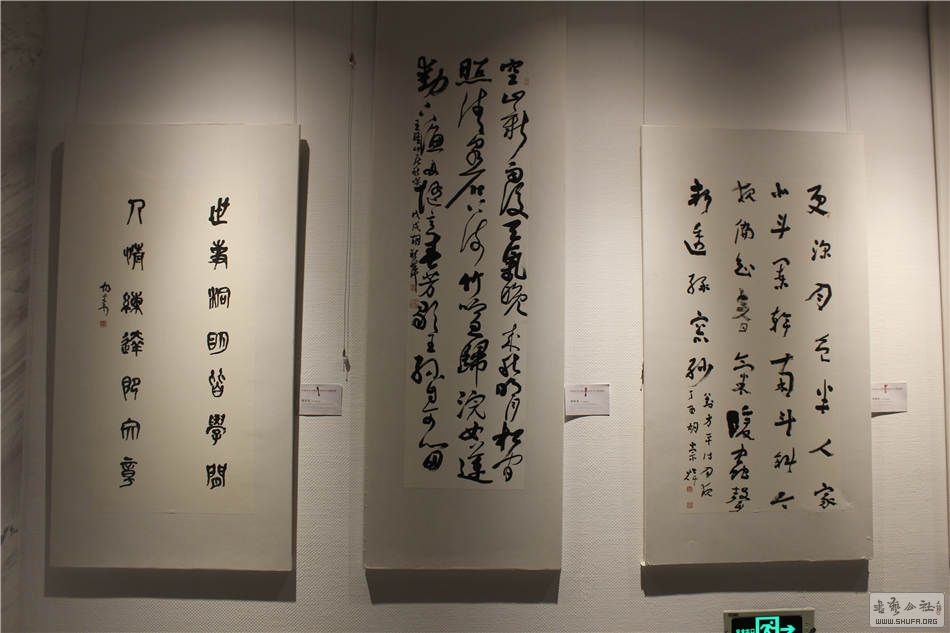 世事洞明皆學問
人情練達即文章
空山新雨後天氣晚來秋明月松間
照清泉石上流竹喧歸浣女蓮
動下漁舟隨意春芳歇王孫自可留
王維山居秋暝
戊戌胡
更深月色半人家
北斗闌干南斗斜今
夜偏知春氣暖蟲聲
新透綠窗紗
劉方平詩月夜
丁酉胡崇
WWW.SHUFA.ORG